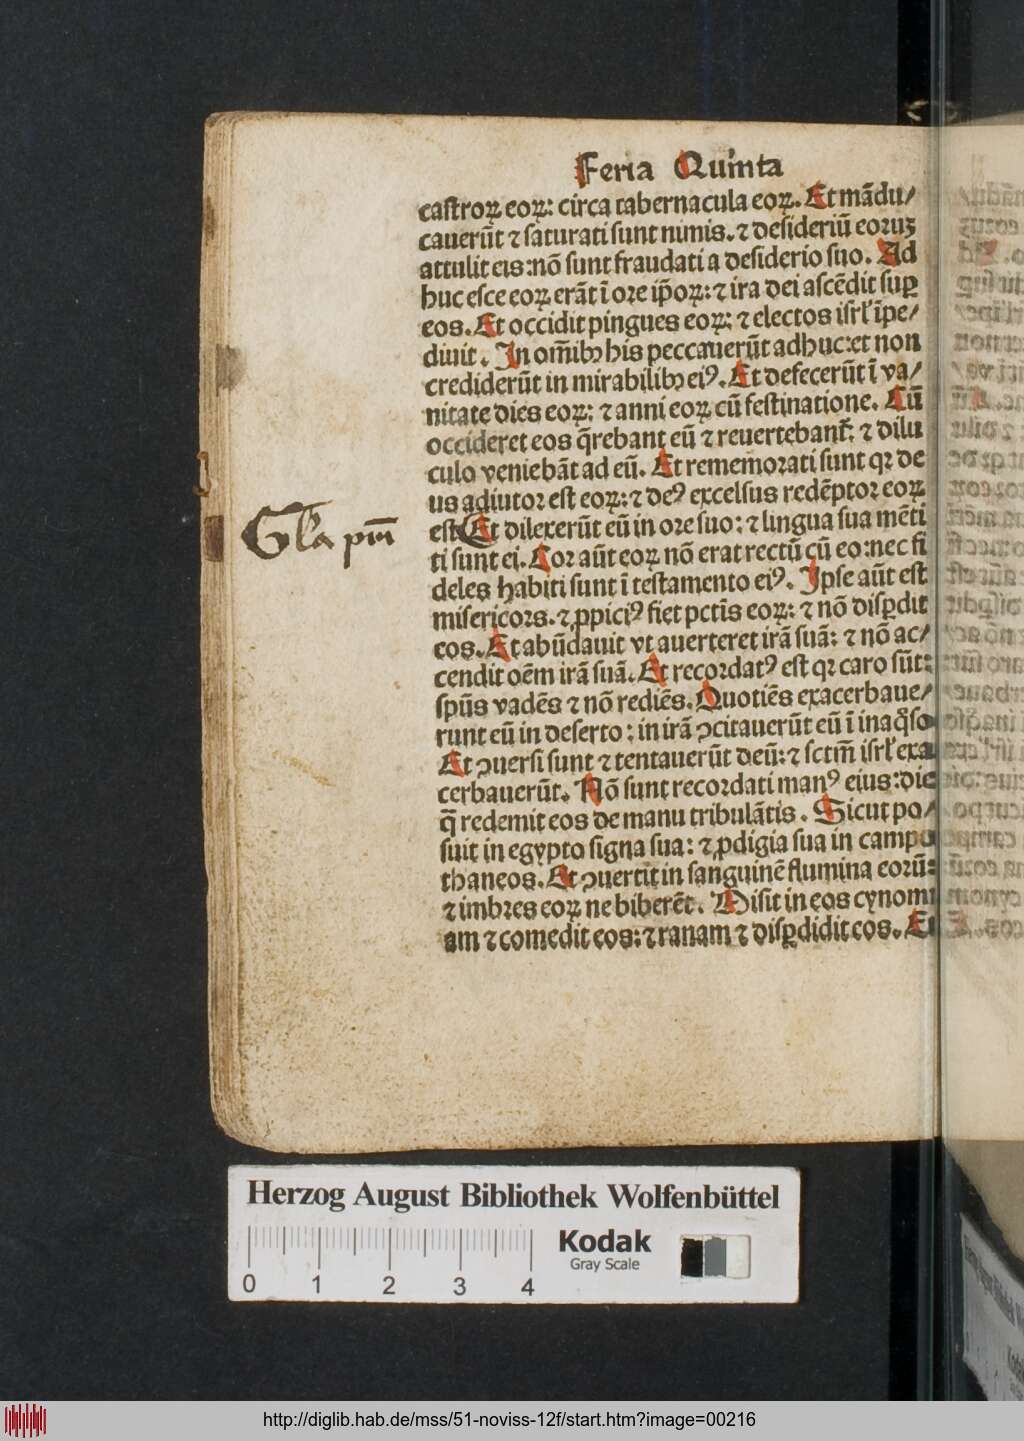 Feria Quinta
castroꝝ eoꝝ: circa tabernacula eoꝝ. Et mādu/
cauerūt ⁊ saturati sunt nimis. ⁊ desideriū eoruꝫ
attulit eis: nō sunt fraudati a desiderio suo. Ad
huc esce eoꝝ erāt ī ore ip̄oꝝ: ⁊ ira dei ascēdit suꝑ
eos. Et occidit pingues eoꝝ: ⁊ electos isrl̓ īpe/
diuit. In om̄ibꝰ his peccauerūt adhuc: et non
crediderūt in mirabilibꝰ eiꝰ. Et defecerūt ī va/
nitate dies eoꝝ: ⁊ anni eoꝝ cū festinatione. Cū
occideret eos q̄rebant eū ⁊ reuertebant᷑: ⁊ dilu
culo veniebāt ad eū. Et rememorati sunt qꝛ de
us adiutor est eoꝝ: ⁊ deꝰ excelsus redēptor eoꝝ
est Et dilexerūt eū in ore suo: ⁊ lingua sua mēti
Gl̄a pm̄
ti sunt ei. Cor aūt eoꝝ nō erat rectū cū eo: nec fi
deles habiti sunt ī testamento eiꝰ. Ipse aūt est
misericors. ⁊ ꝓpiciꝰ fiet pctīs eoꝝ: ⁊ nō disꝑdit
eos. Et abūdauit vt auerteret irā suā: ⁊ nō ac/
cendit oēm irā suā. Et recordatꝰ est qꝛ caro sūt:
spūs vadēs ⁊ nō rediēs. Quotiēs exacerbaue/
runt eū in deserto: in irā ꝯcitauerūt eū ī inaq̊so
Et ꝯuersi sunt ⁊ tentauerūt deū: ⁊ sctm̄ isrl̓ exa
cerbauerūt. Nō sunt recordati manꝰ eius: die
q̄ redemit eos de manu tribulātis. Sicut po/
suit in egypto signa sua: ⁊ ꝓdigia sua in campo
thaneos. Et ꝯuertit in sanguinē flumina eorū:
⁊ imbres eoꝝ ne biberēt. Misit in eos cynomi
am ⁊ comedit eos: ⁊ ranam ⁊ disꝑdidit eos. Et
Herzog August Bibliothek Wolfenbüttel
Kodak
Gray Scale
0 1 2 3 4
http://diglib.hab.de/mss/51-noviss-12f/start.htm?image=00216